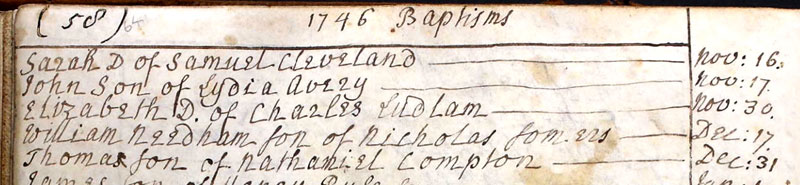 (58) 64 1746 Baptisms
Sarah D of Samuel Cleveland Nov: 16.
John Son of Lydia Avery Nov: 17.
Elizabeth D. of Charles Ludlam Nov: 30.
William Needham son of Nicholas Somers Dec: 17
Thomas son of Nathaniel Compton Dec: 31
James son of